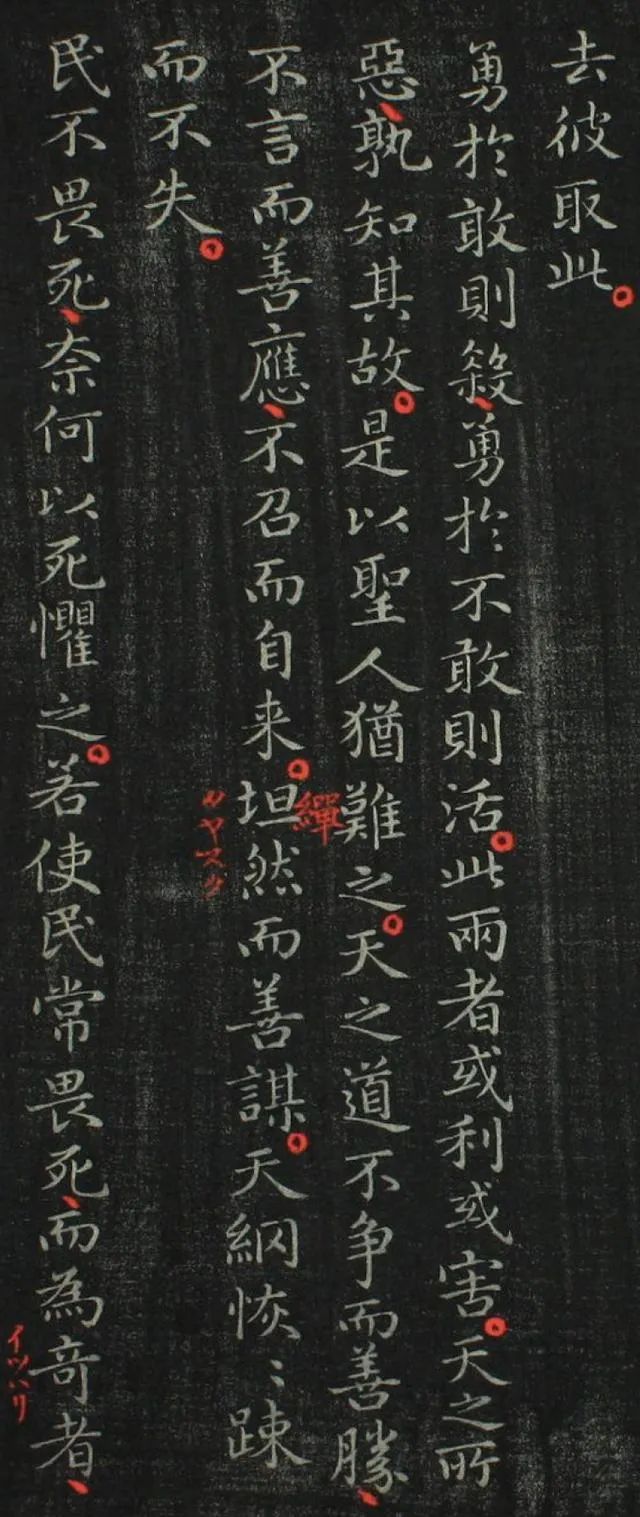 去彼取此。
勇於敢則殺、勇於不敢則活。此兩者或利或害。天之所
惡、孰知其故。是以聖人猶難之。天之道不争而善勝、
不言而善應、不召而自来。坦然而善謀。天網恢〻踈
繟
而不失。
民不畏死、奈何以死懼之。若使民常畏死、而為奇者、
イツハリ